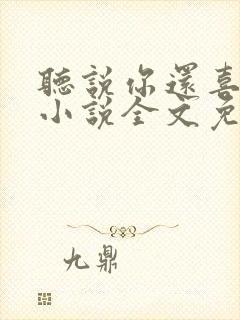 聽說你還喜
小說全文免
九鼎